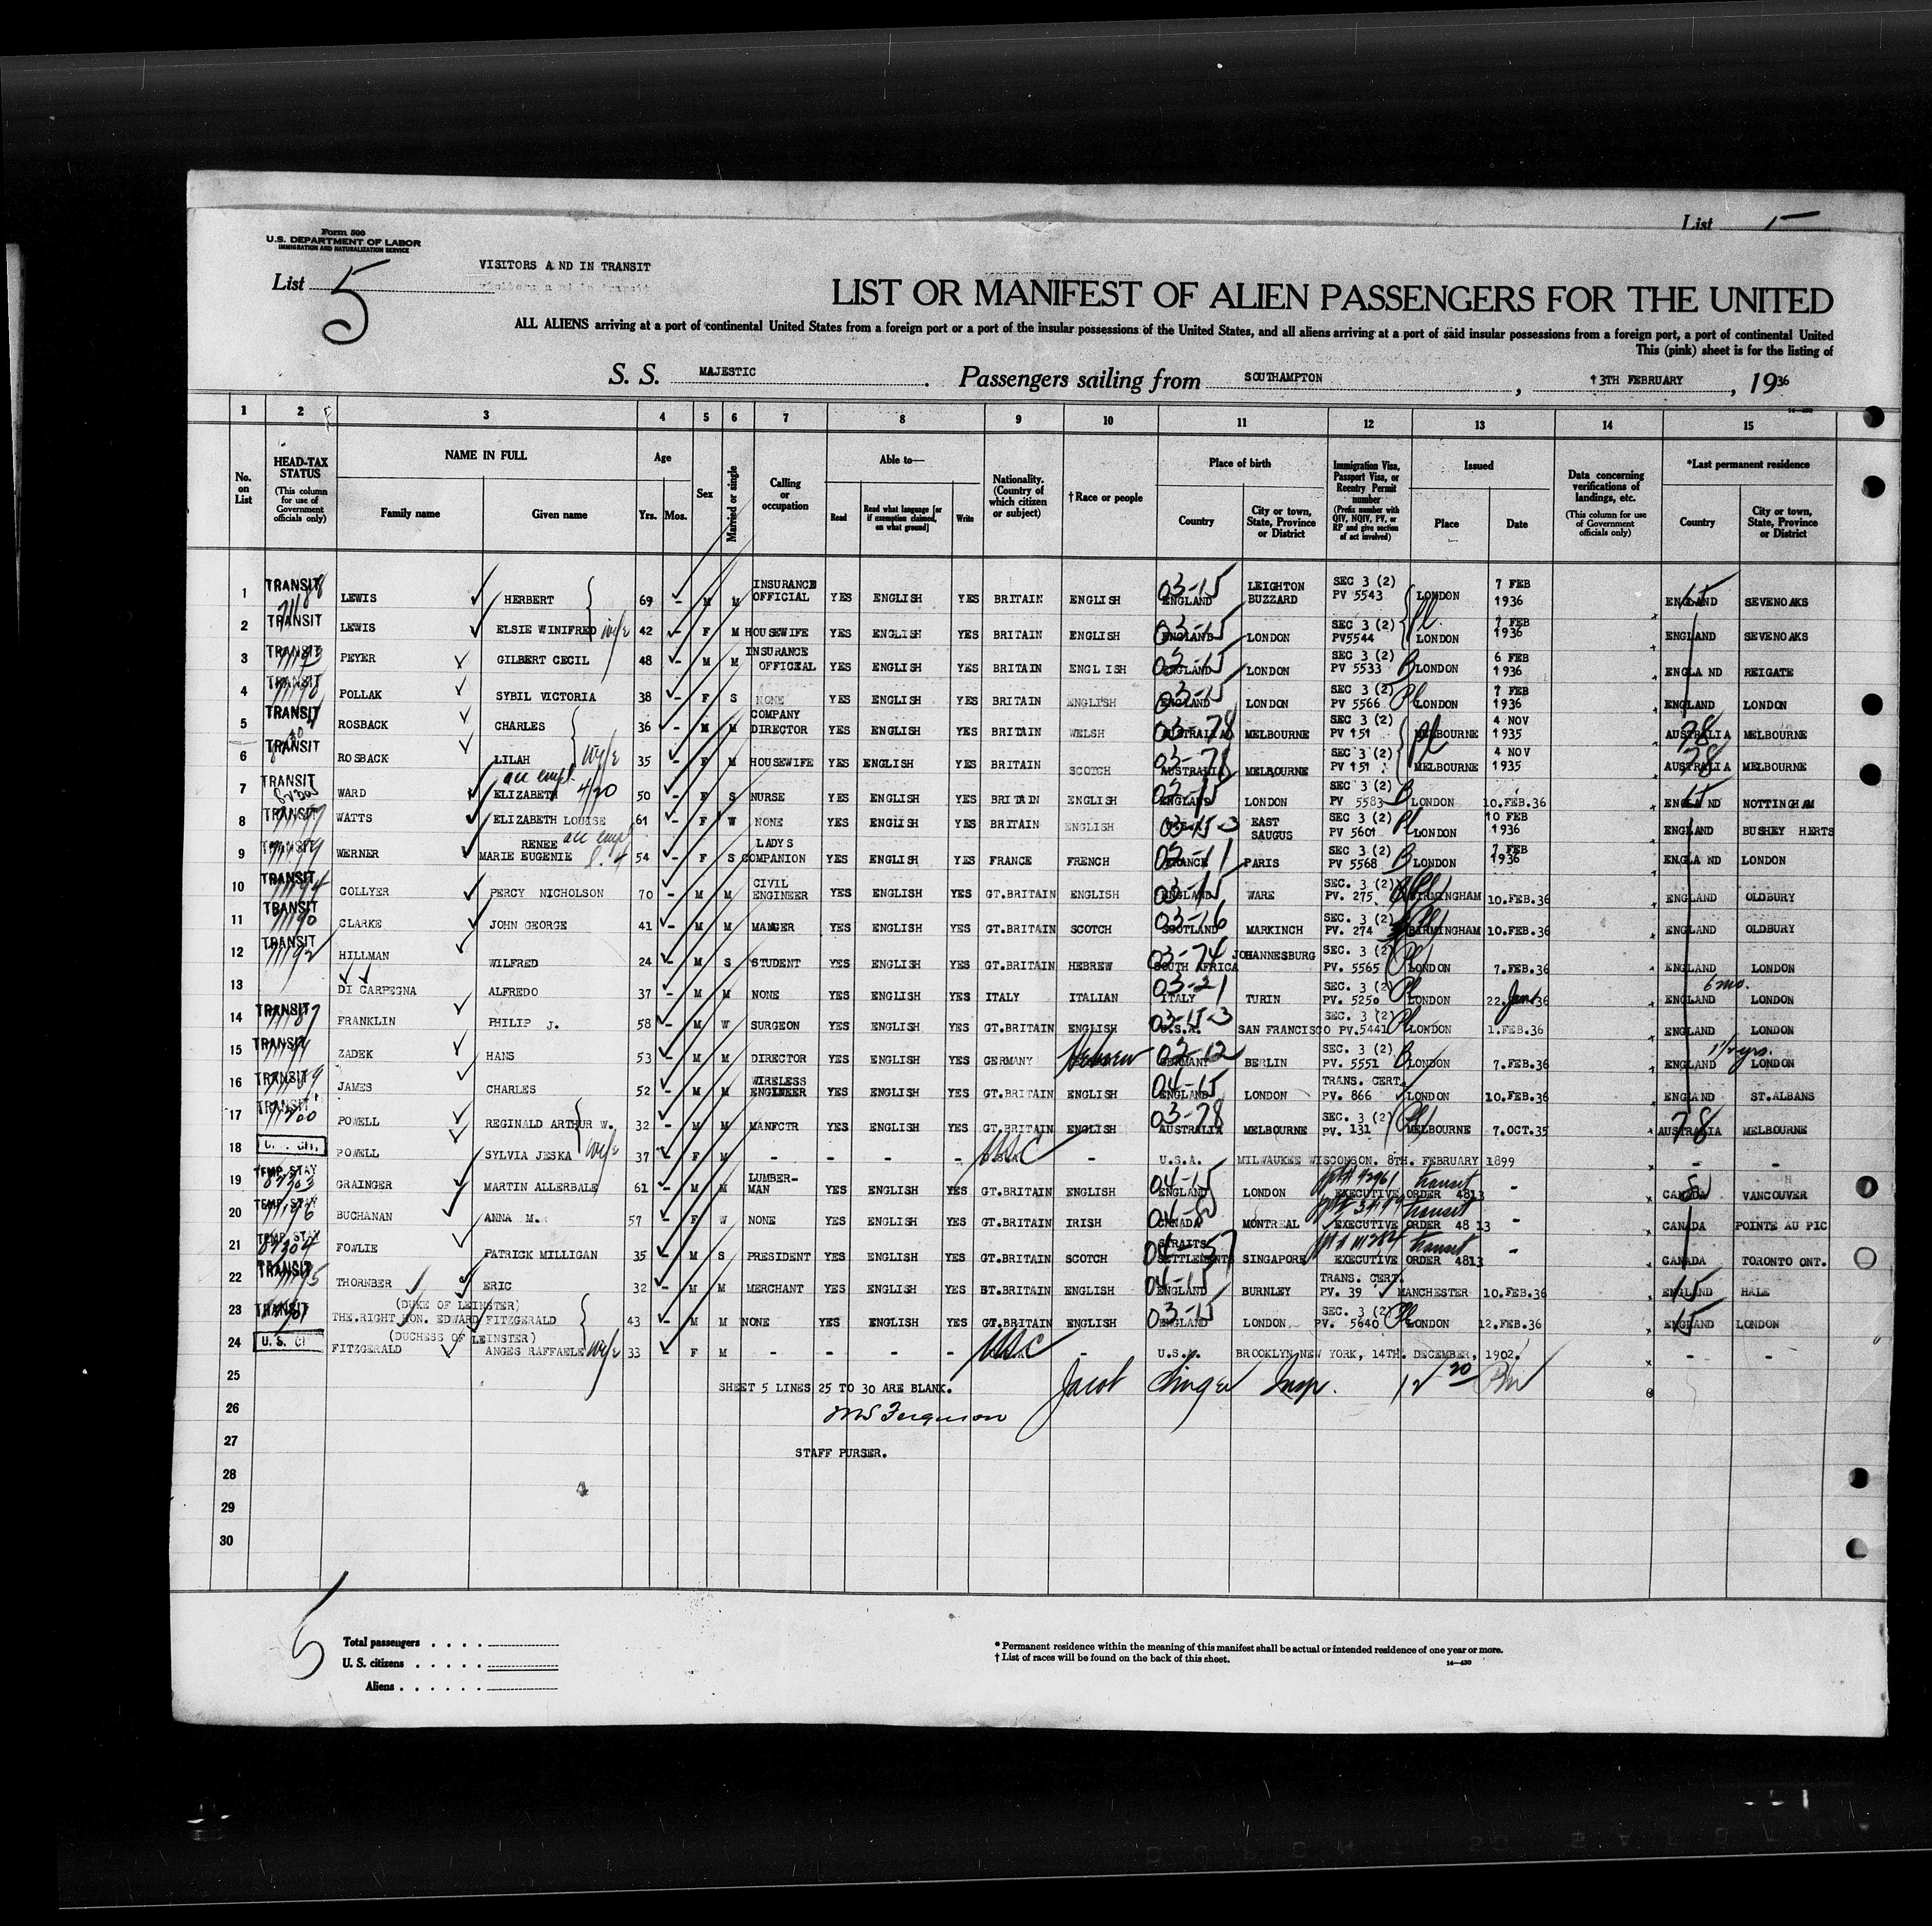 Form 500
U.S. DEPARTMENT OF LABOR
IMMIGRATION AND NATURALIZATION SERVICE
List 5
VISITORS A ND IN TRANSIT
List
LIST OR MANIFEST OF ALIEN PASSENGERS FOR THE UNITED
ALL ALIENS arriving at a port of continental United States from a foreign port or a port of the insular possessions of the United States, and all aliens arriving at a port of said insular possessions from a foreign port, a port of continental United
This (pink) sheet is for the listing of
S. S. MAJESTIC. Passengers sailing from SOUTHAMPTON, 13TH FEBRUARY, 1936
1 2 3 4 5 6 7 8 9 10 11 12 13 14 15
No. on List
HEAD-TAX STATUS (This column for use of Government officials only)
NAME IN FULL
Family name Given name
Age
Yrs. Mos.
Sex
Married or single
Calling or occupation
Able to—
Read Read what language [or if exemption claimed, on what ground] Write
Nationality. (Country of which citizen or subject)
†Race or people
Place of birth
Country City or town, State, Province or District
Immigration Visa, Passport Visa, or Reentry Permit number (Prefix number with QIV, NQIV, PV, or RP and give section of act involved)
Issued
Place Date
Data concerning verifications of landings, etc. (This column for use of Government officials only)
*Last permanent residence
Country City or town, State, Province or District
1 TRANSIT LEWIS HERBERT 69 - M M INSURANCE OFFICIAL YES ENGLISH YES BRITAIN ENGLISH 03-15 ENGLAND LEIGHTON BUZZARD SEC 3 (2) PV 5543 LONDON 7 FEB 1936 ENGLAND SEVENOAKS
2 TRANSIT LEWIS ELSIE WINIFRED wife 42 - F M HOUSEWIFE YES ENGLISH YES BRITAIN ENGLISH 03-15 ENGLAND LONDON SEC 3 (2) PV5544 LONDON 7 FEB 1936 ENGLAND SEVENOAKS
3 TRANSIT PEYER GILBERT CECIL 48 - M M INSURANCE OFFICEAL YES ENGLISH YES BRITAIN ENGLISH 03-15 ENGLAND LONDON SEC 3 (2) PV 5533 LONDON 6 FEB 1936 ENGLA ND REIGATE
4 TRANSIT POLLAK SYBIL VICTORIA 38 - F S NONE YES ENGLISH YES BRITAIN ENGLISH 03-15 ENGLAND LONDON SEC 3 (2) PV 5566 LONDON 7 FEB 1936 ENGLAND LONDON
5 TRANSIT ROSBACK CHARLES 36 - M M COMPANY DIRECTOR YES ENGLISH YES BRITAIN WELSH 03-78 AUSTRALIA MELBOURNE SEC 3 (2) PV 151 MELBOURNE 4 NOV 1935 78 AUSTRALIA MELBOURNE
6 TRANSIT ROSBACK LILAH wife 35 - F M HOUSEWIFE YES ENGLISH YES BRITAIN SCOTCH 03-78 AUSTRALIA MELBOURNE SEC 3 (2) PV 151 MELBOURNE 4 NOV 1935 78 AUSTRALIA MELBOURNE
7 TRANSIT WARD ELIZABETH acc empl. 4/20 50 - F S NURSE YES ENGLISH YES BRITAIN ENGLISH 03-15 ENGLAND LONDON SEC 3 (2) PV 5583 LONDON 10.FEB.36 15 ENGLAND NOTTINGHAM
8 TRANSIT WATTS ELIZABETH LOUISE 61 - F W NONE YES ENGLISH YES BRITAIN ENGLISH 03-15-3 EAST SAUGUS SEC 3 (2) PV 5601 LONDON 10 FEB 1936 ENGLAND BUSHEY HERTS
9 TRANSIT WERNER RENEE MARIE EUGENIE acc empl 54 - F S LADYS COMPANION YES ENGLISH YES FRANCE FRENCH 03-11 FRANCE PARIS SEC 3 (2) PV 5568 LONDON 7 FEB 1936 ENGLA ND LONDON
10 TRANSIT COLLYER PERCY NICHOLSON 70 - M M CIVIL ENGINEER YES ENGLISH YES GT.BRITAIN ENGLISH 03-15 ENGLAND WARE SEC. 3 (2) PV. 275 BIRMINGHAM 10.FEB.36 ENGLAND OLDBURY
11 TRANSIT CLARKE JOHN GEORGE 41 - M M MANGER YES ENGLISH YES GT.BRITAIN SCOTCH 03-16 SCOTLAND MARKINCH SEC. 3 (2) PV. 274 BIRMINGHAM 10.FEB.36 ENGLAND OLDBURY
12 TRANSIT HILLMAN WILFRED 24 - M S STUDENT YES ENGLISH YES GT.BRITAIN HEBREW 03-74 SOUTH AFRICA JOHANNESBURG SEC. 3 (2) PV. 5565 LONDON 7.FEB.36 ENGLAND LONDON
13 DI CARPEGNA ALFREDO 37 - M M NONE YES ENGLISH YES ITALY ITALIAN 03-21 ITALY TURIN SEC. 3 (2) PV. 5250 LONDON 22.Jan.36 6 mo. ENGLAND LONDON
14 TRANSIT FRANKLIN PHILIP J. 58 - M W SURGEON YES ENGLISH YES GT.BRITAIN ENGLISH 03-15-3 U.S.A. SAN FRANCISCO SEC. 3 (2) PV.5441 LONDON 1.FEB.36 ENGLAND LONDON
15 TRANSIT ZADEK HANS 53 - M M DIRECTOR YES ENGLISH YES GERMANY Hebrew 03-12 GERMANY BERLIN SEC. 3 (2) PV. 5551 LONDON 7.FEB.36 1 1/2 yrs. ENGLAND LONDON
16 TRANSIT JAMES CHARLES 52 - M M WIRELESS ENGINEER YES ENGLISH YES GT.BRITAIN ENGLISH 04-15 ENGLAND LONDON TRANS. CERT. PV. 866 LONDON 10.FEB.36 ENGLAND ST.ALBANS
17 TRANSIT POWELL REGINALD ARTHUR W. 32 - M M MANFCTR YES ENGLISH YES GT.BRITAIN ENGLISH 03-78 AUSTRALIA MELBOURNE SEC. 3 (2) PV. 131 MELBOURNE 7.OCT.35 78 AUSTRALIA MELBOURNE
18 POWELL SYLVIA JESKA wife 37 - F M - - - - USC - U.S.A. MILWAUKEE WISCONSON. 8TH. FEBRUARY 1899 - -
19 TEMP. STAY 87303 GRAINGER MARTIN ALLERBALE 61 - M M LUMBER-MAN YES ENGLISH YES GT.BRITAIN ENGLISH 04-15 ENGLAND LONDON transit EXECUTIVE ORDER 4813 - CANADA VANCOUVER
20 TEMP. STAY BUCHANAN ANNA M. 57 - F W NONE YES ENGLISH YES GT.BRITAIN IRISH CANADA MONTREAL transit EXECUTIVE ORDER 48 13 - CANADA POINTE AU PIC
21 TEMP. STAY 87304 FOWLIE PATRICK MILLIGAN 35 - M S PRESIDENT YES ENGLISH YES GT.BRITAIN SCOTCH 04-57 STRAITS SETTLEMENTS SINGAPORE transit EXECUTIVE ORDER 4813 - CANADA TORONTO ONT.
22 TRANSIT THORNBER ERIC 32 - M M MERCHANT YES ENGLISH YES GT.BRITAIN ENGLISH 04-15 ENGLAND BURNLEY TRANS. CERT. PV. 39 MANCHESTER 10.FEB.36 15 ENGLAND HALE
23 TRANSIT (DUKE OF LEINSTER) THE.RIGHT HON. EDWARD FITZGERALD 43 - M M NONE YES ENGLISH YES GT.BRITAIN ENGLISH 03-15 ENGLAND LONDON SEC. 3 (2) PV. 5640 LONDON 12.FEB.36 15 ENGLAND LONDON
24 U.S. CI (DUCHESS OF LEINSTER) FITZGERALD ANGES RAFFAELE wife 33 - F M - - - - USC - U.S.A. BROOKLYN NEW YORK, 14TH. DECEMBER, 1902. - -
25 SHEET 5 LINES 25 TO 30 ARE BLANK. Jacob Insp. 12 20 PM
26 Ferguson
27 STAFF PURSER.
28
29
30
5
Total passengers
U. S. citizens
Aliens
* Permanent residence within the meaning of this manifest shall be actual or intended residence of one year or more.
† List of races will be found on the back of this sheet.
14—430